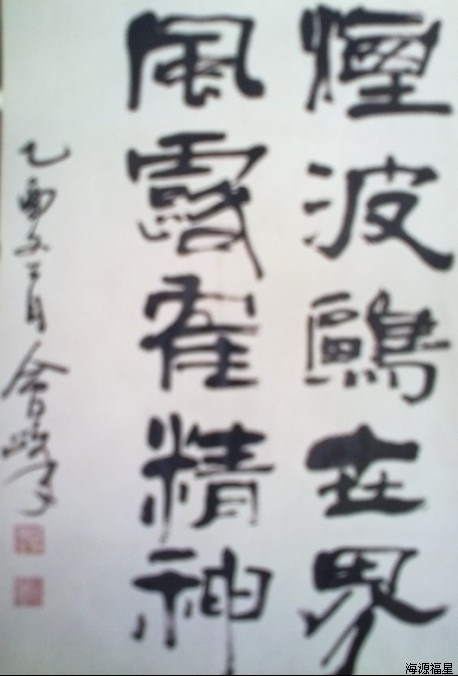 煙波鷗世界
風露隺精神
乙酉 月會
海源福星